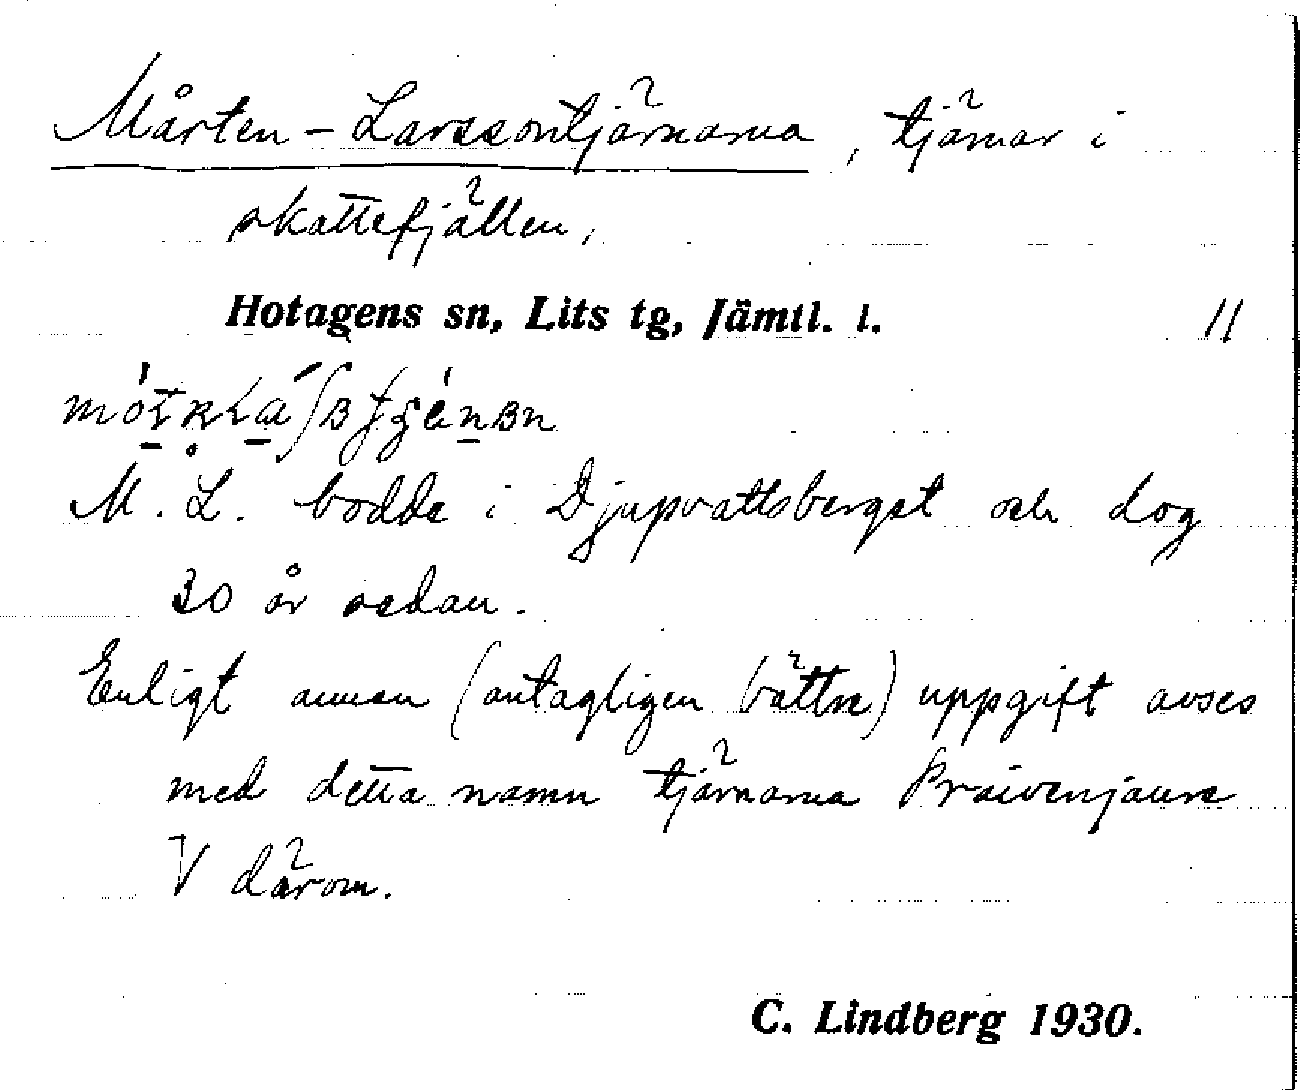 Mårten-Larssontjärnarna, tjärnar i
skattefjällen,
Hotagens sn, Lits tg, Jämtl. l. 11
M. L. bodde i Djupvattsberget och dog
30 år sedan.
Enligt annan (antagligen bättre) uppgift avses
med detta namn tjärnarna Praivenjaure
V därom.
C. Lindberg 1930.